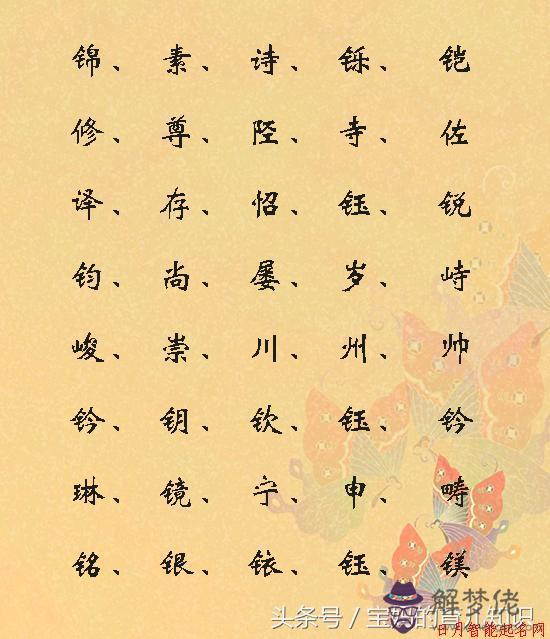 锦、素、诗、铄、铠
修、尊、陉、寺、佐
泽、存、怊、钰、锐
钧、尚、屡、岁、峙
峻、崇、川、州、帅
钤、钥、钦、钰、钤
琳、镜、宁、申、畴
铭、银、铱、钰、镁
解梦佬
头条号/宝妈的育儿知识
日月智能起名网